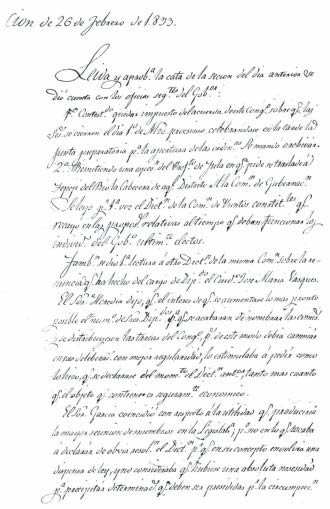 de 26 de Febrero de 1833.
Leida y aprobª. la acta de la secion del dia anterior se
dió cuenta con los oficios segtes. del Gobno.
1º. Contestn. quedar impuesto de la de este Congº. sobre qe. las
Seciones el dia 1º. de Mzo. procsimo celebrandose en la tarde la
Junta preparatoria pª. la apertura de las ordns. Se mandó archivar.
2º. Remitiendo una esposn. del de en qe. pide se traslade á
la Cabecera de aql. Distrito. A la Comn. de Gobernn.
Se leyó pr. 1ª. vez el Dictn. de la Comn. de Puntos constitles. qe.
recayó en las relativas al tiempo qe. deban funcionar los
individs. del Gobº. ultimte. electos.
Tambn. se dió 1ª. lectura á otro Dictn. de la misma Comn. sobre la re-
nuncia qe. ha hecho del cargo de Dipº. el Ciudº. Jose Maria Vazques.
El Señr. Heredia dijo, qe. el interes de qe. se aumentase lo mas pronto
posible el numº. de Sres. Dips. pª. qe. se acabaran de nombrar las comns.
y se distribuyesen las tareas del Congº., ps. de este modo debia caminar
en sus deliberacs. con mejor regularidad, lo estimulaba á pedir como
lo hizo, qe. se declarase del momto. el Dictn. antr. tanto mas cuanto
qe. el objeto qe. contiene es seguramte. economico.
El Sr. Garcia convenido con respecto á la utilidad qe. produciria
la mayor reunion de miembros en la Legislatª., pº. no en lo qe. tocaba
á declarar de obvia resoln. el Dictn. pr. qe. en su concepto envolvia una
dispensa de ley, y no consideraba qe. hubiese una absoluta necesidad
pª. precipitar determinacs. qe. deben ser presididas pr. la circunspecn.